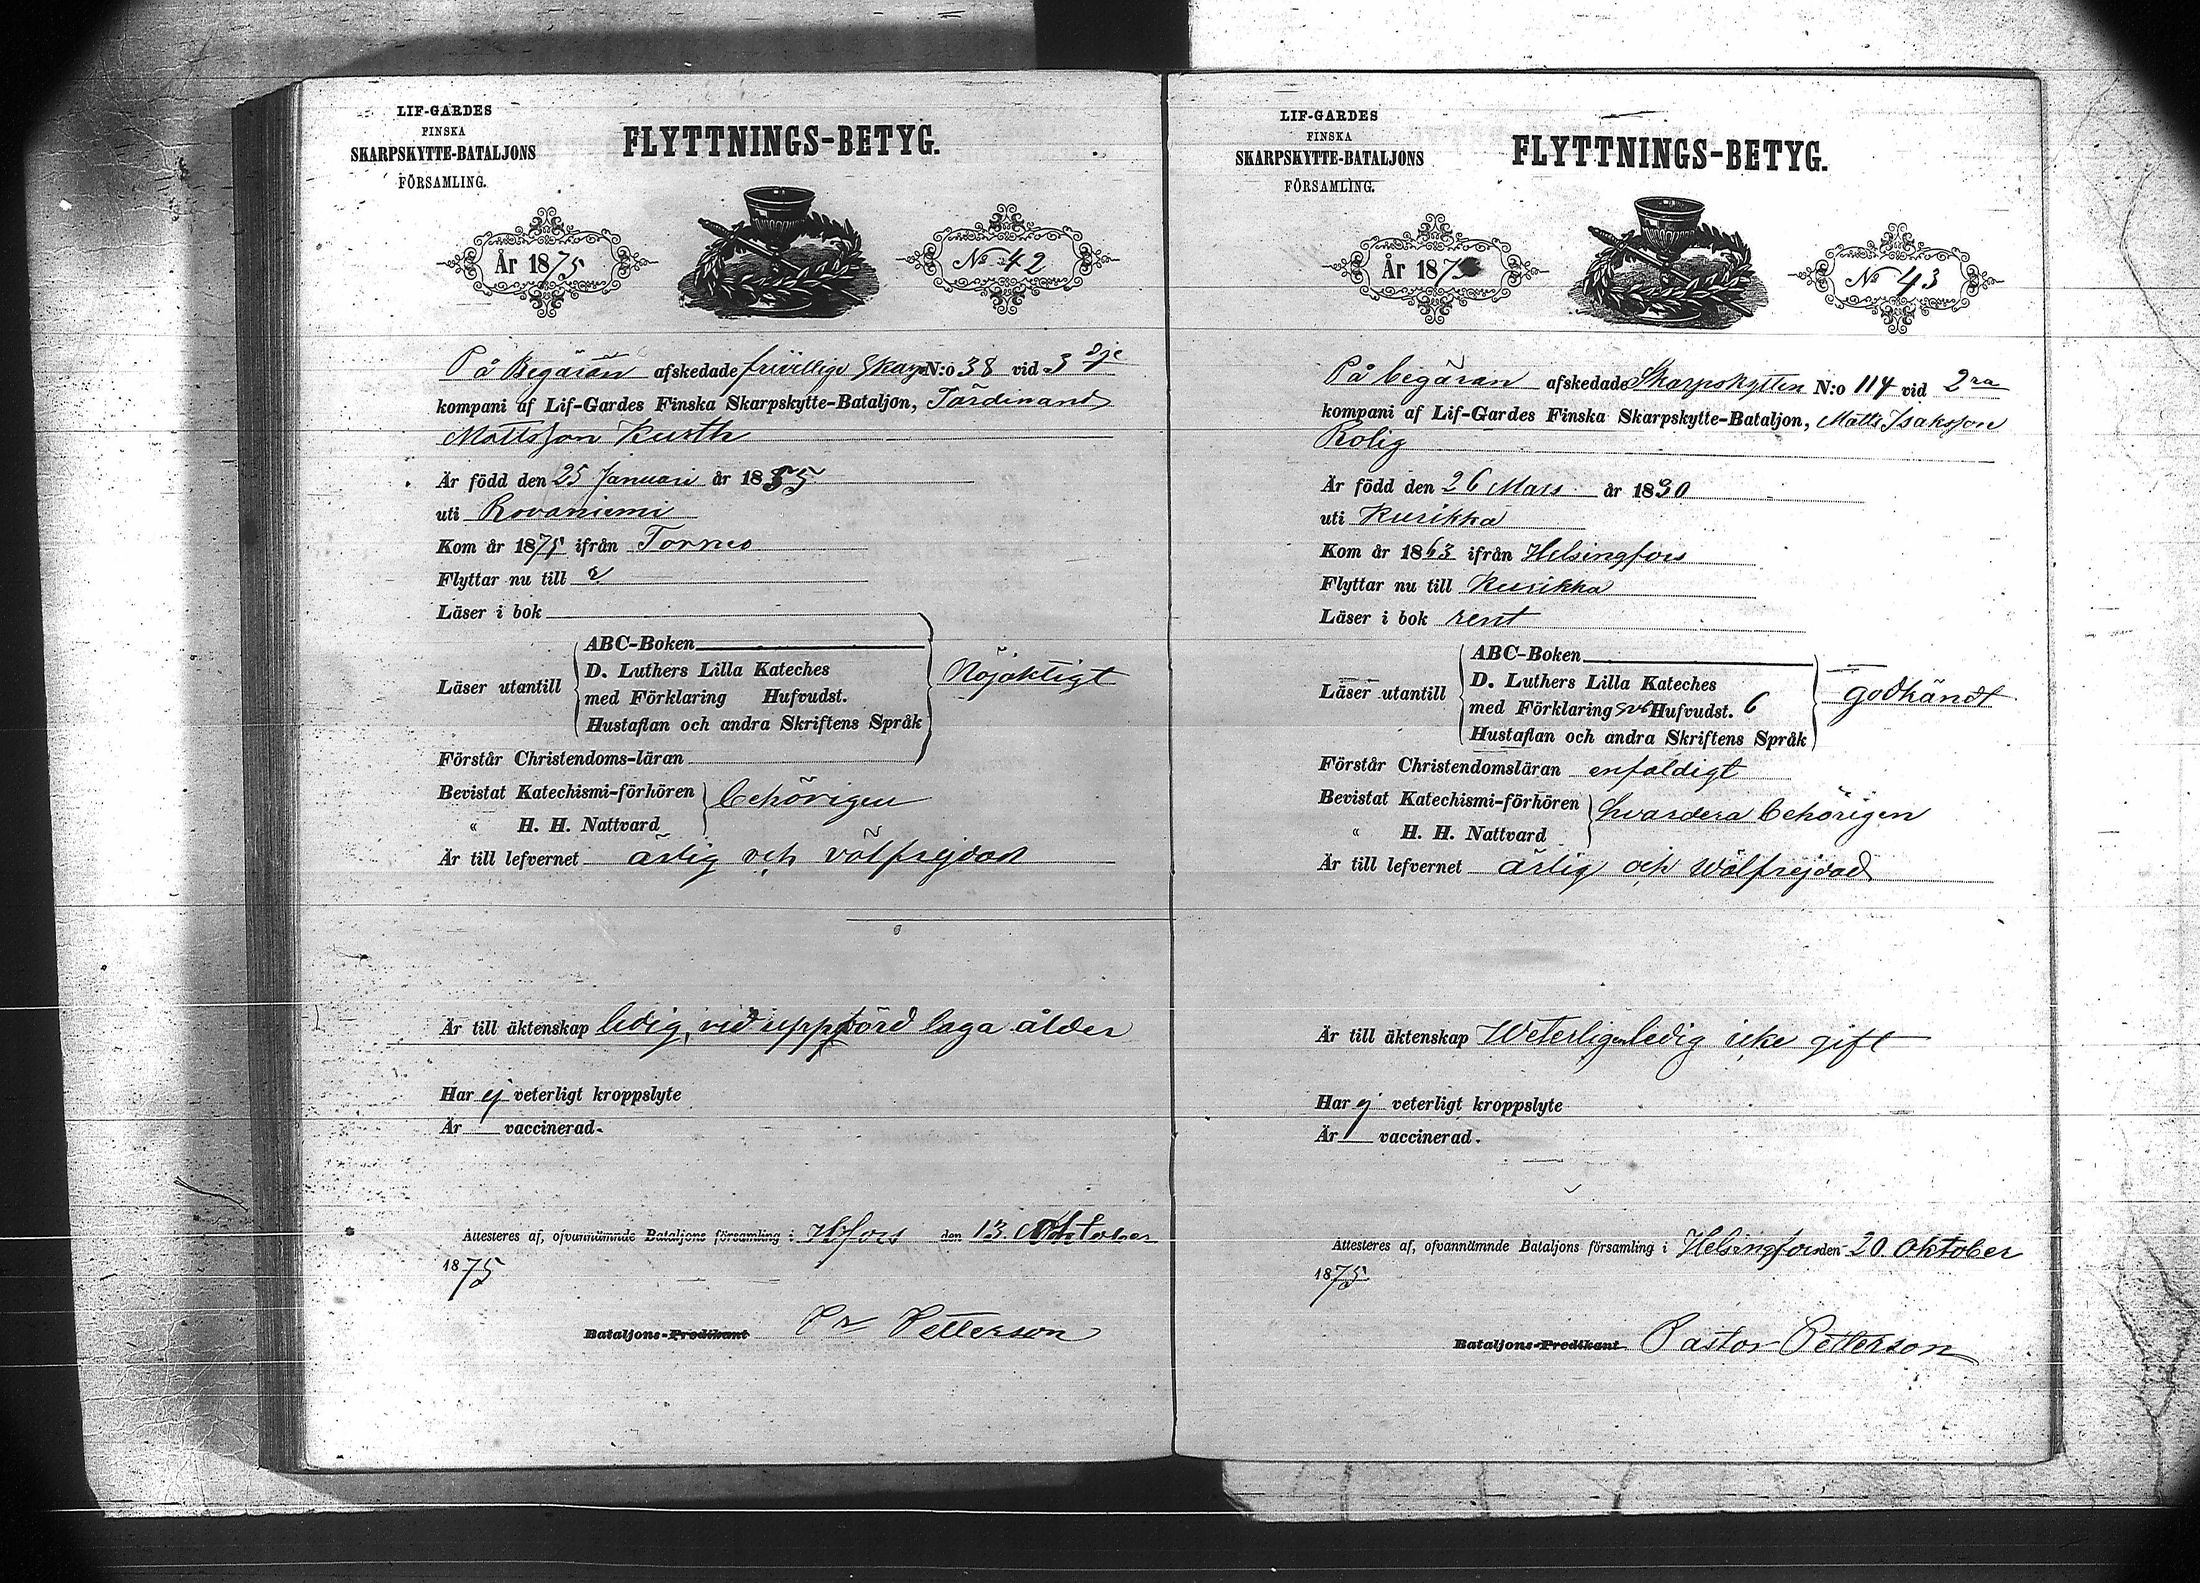 LIF-GARDES
FINSKA
SKARPSKYTTE-BATALJONS
FÖRSAMLING.
FLYTTNINGS-BETYG.
År 1875
No 42
På Begäran afskedade frivillige Skarp N:o 38 vid 3dje
kompani af Lif-Gardes Finska Skarpskytte-Bataljon, Färdinand
Mattsson Kurth
Är född den 25 Januari år 1855
uti Rovaniemi
Kom år 1875 ifrån Torneo
Flyttar nu till
Läser i bok
Läser utantill
ABC-Boken
D. Luthers Lilla Kateches
med Förklaring Hufvudst.
Hustaflan och andra Skriftens Språk
Nöjaktigt
Förstår Christendoms-läran
Bevistat Katechismi-förhören
« H. H. Nattvard
behörigen
Är till lefvernet ärlig och välfrejdad
Är till äktenskap ledig, vid uppförd laga ålder
Har ej veterligt kroppslyte
Är vaccinerad.
Attesteres af, ofvannämnde Bataljons församling i H:fors den 13 Oktober
1875
Bataljons-Predikant Petterson
LIF-GARDES
FINSKA
SKARPSKYTTE-BATALJONS
FÖRSAMLING.
FLYTTNINGS-BETYG.
År 1875
No 43
På begäran afskedade Skarpskytten N:o 114 vid 2ra
kompani af Lif-Gardes Finska Skarpskytte-Bataljon, Matts Isaksson
Rolig
Är född den 26 Mars år 1830
uti Kurikka
Kom år 1863 ifrån Helsingfors
Flyttar nu till Kurikka
Läser i bok rent
Läser utantill
ABC-Boken
D. Luthers Lilla Kateches
med Förklaring Hufvudst. 6
Hustaflan och andra Skriftens Språk
godkändt
Förstår Christendomsläran enfaldigt
Bevistat Katechismi-förhören
« H. H. Nattvard
hvardera behörigen
Är till lefvernet ärlig och wälfrejdad
Är till äktenskap Weterligen ledig icke gift
Har ej veterligt kroppslyte
Är vaccinerad.
Attesteres af, ofvannämnde Bataljons församling i Helsingfors den 20 Oktober
1875
Bataljons-Predikant Pastor Petterson